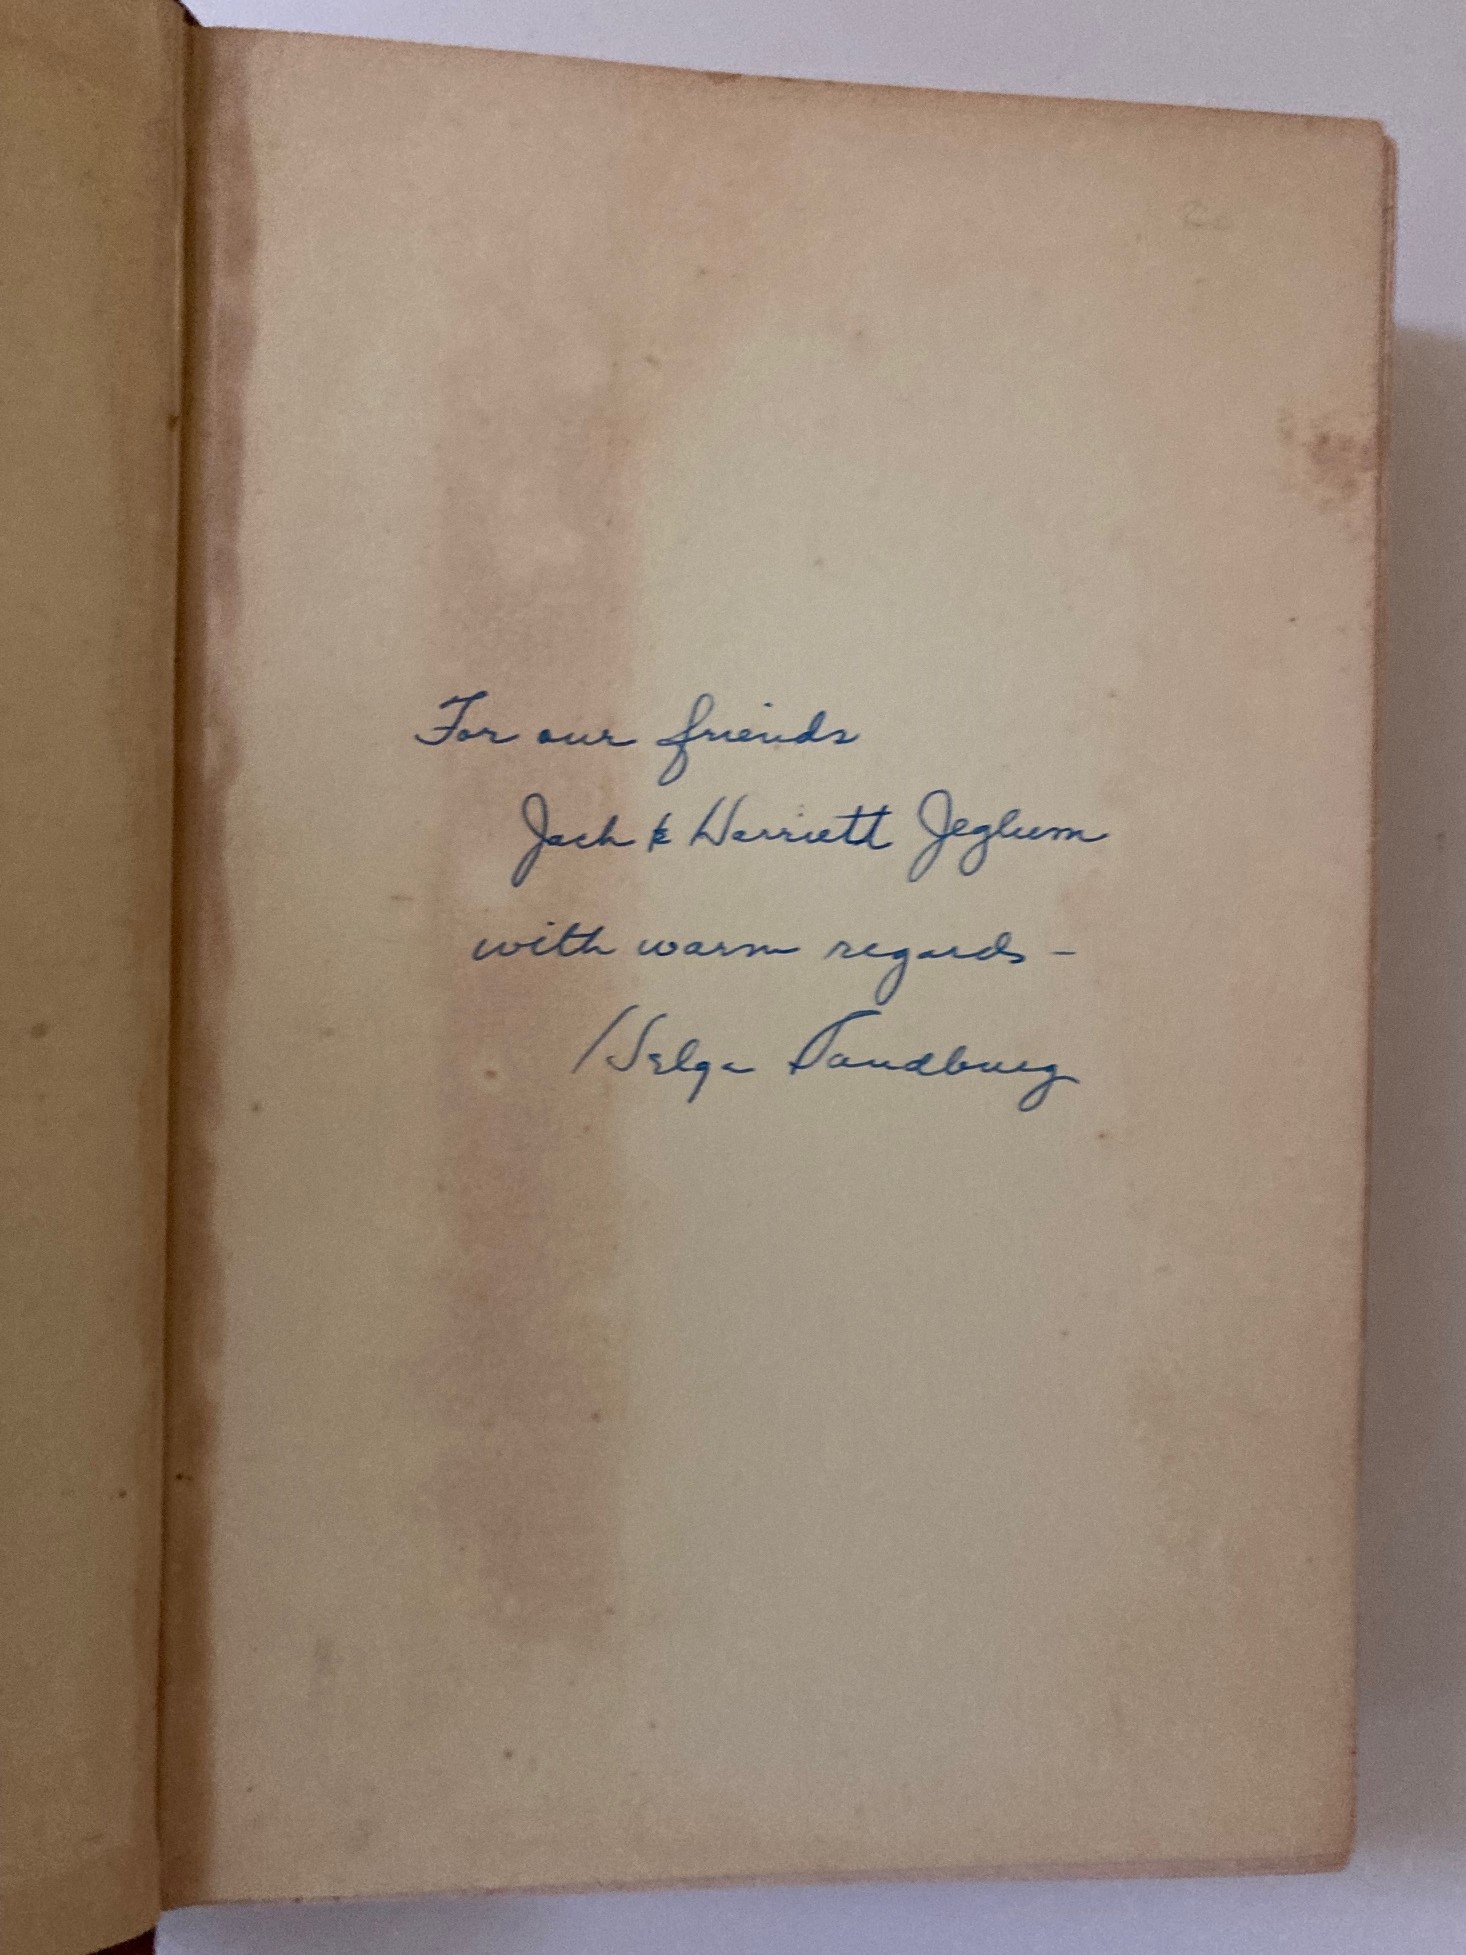 For our friends
Jack & Harriett Jeglum
with warm regards -
Helga Sandburg